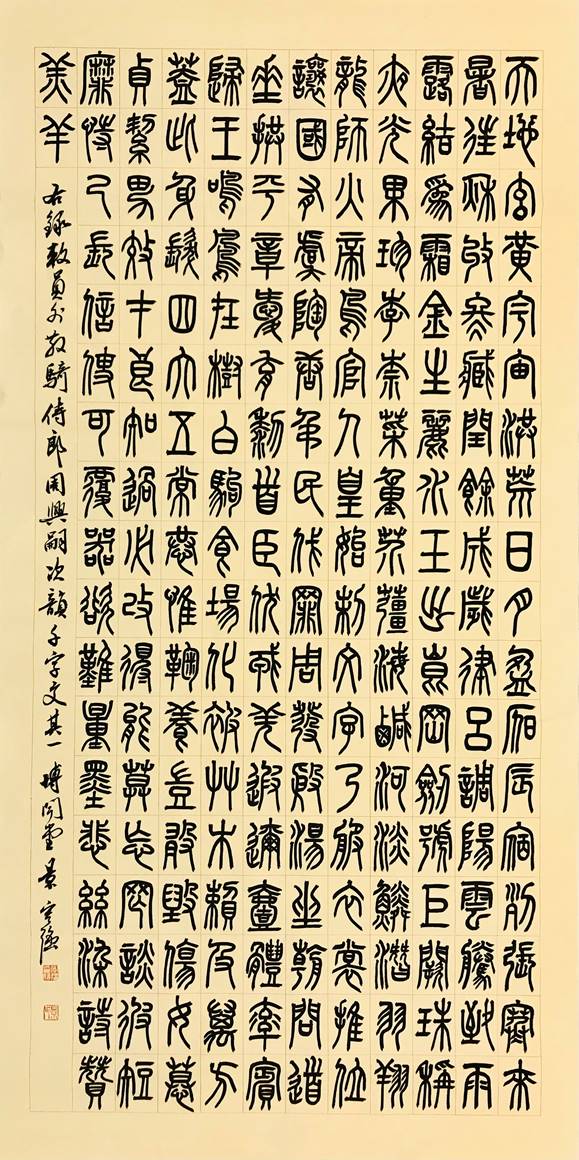 天地玄黃宇宙洪荒日月盈昃辰宿列張寒來
暑往秋收冬藏閏餘成歲律呂調陽雲騰致雨
露結爲霜金生麗水玉出崑岡劍號巨闕珠稱
夜光果珍李柰菜重芥薑海鹹河淡鱗潛羽翔
龍師火帝鳥官人皇始制文字乃服衣裳推位
讓國有虞陶唐弔民伐罪周發殷湯坐朝問道
垂拱平章愛育黎首臣伏戎羌遐邇壹體率賓
歸王鳴鳳在樹白駒食場化被艸木賴及萬方
蓋此身髮四大五常恭惟鞠養豈敢毀傷女慕
貞絜男效才良知過必改得能莫忘罔談彼短
靡恃己長信使可覆器欲難量墨悲絲染詩贊
羔羊
右錄敕員外散騎侍郎周興嗣次韻千字文其一